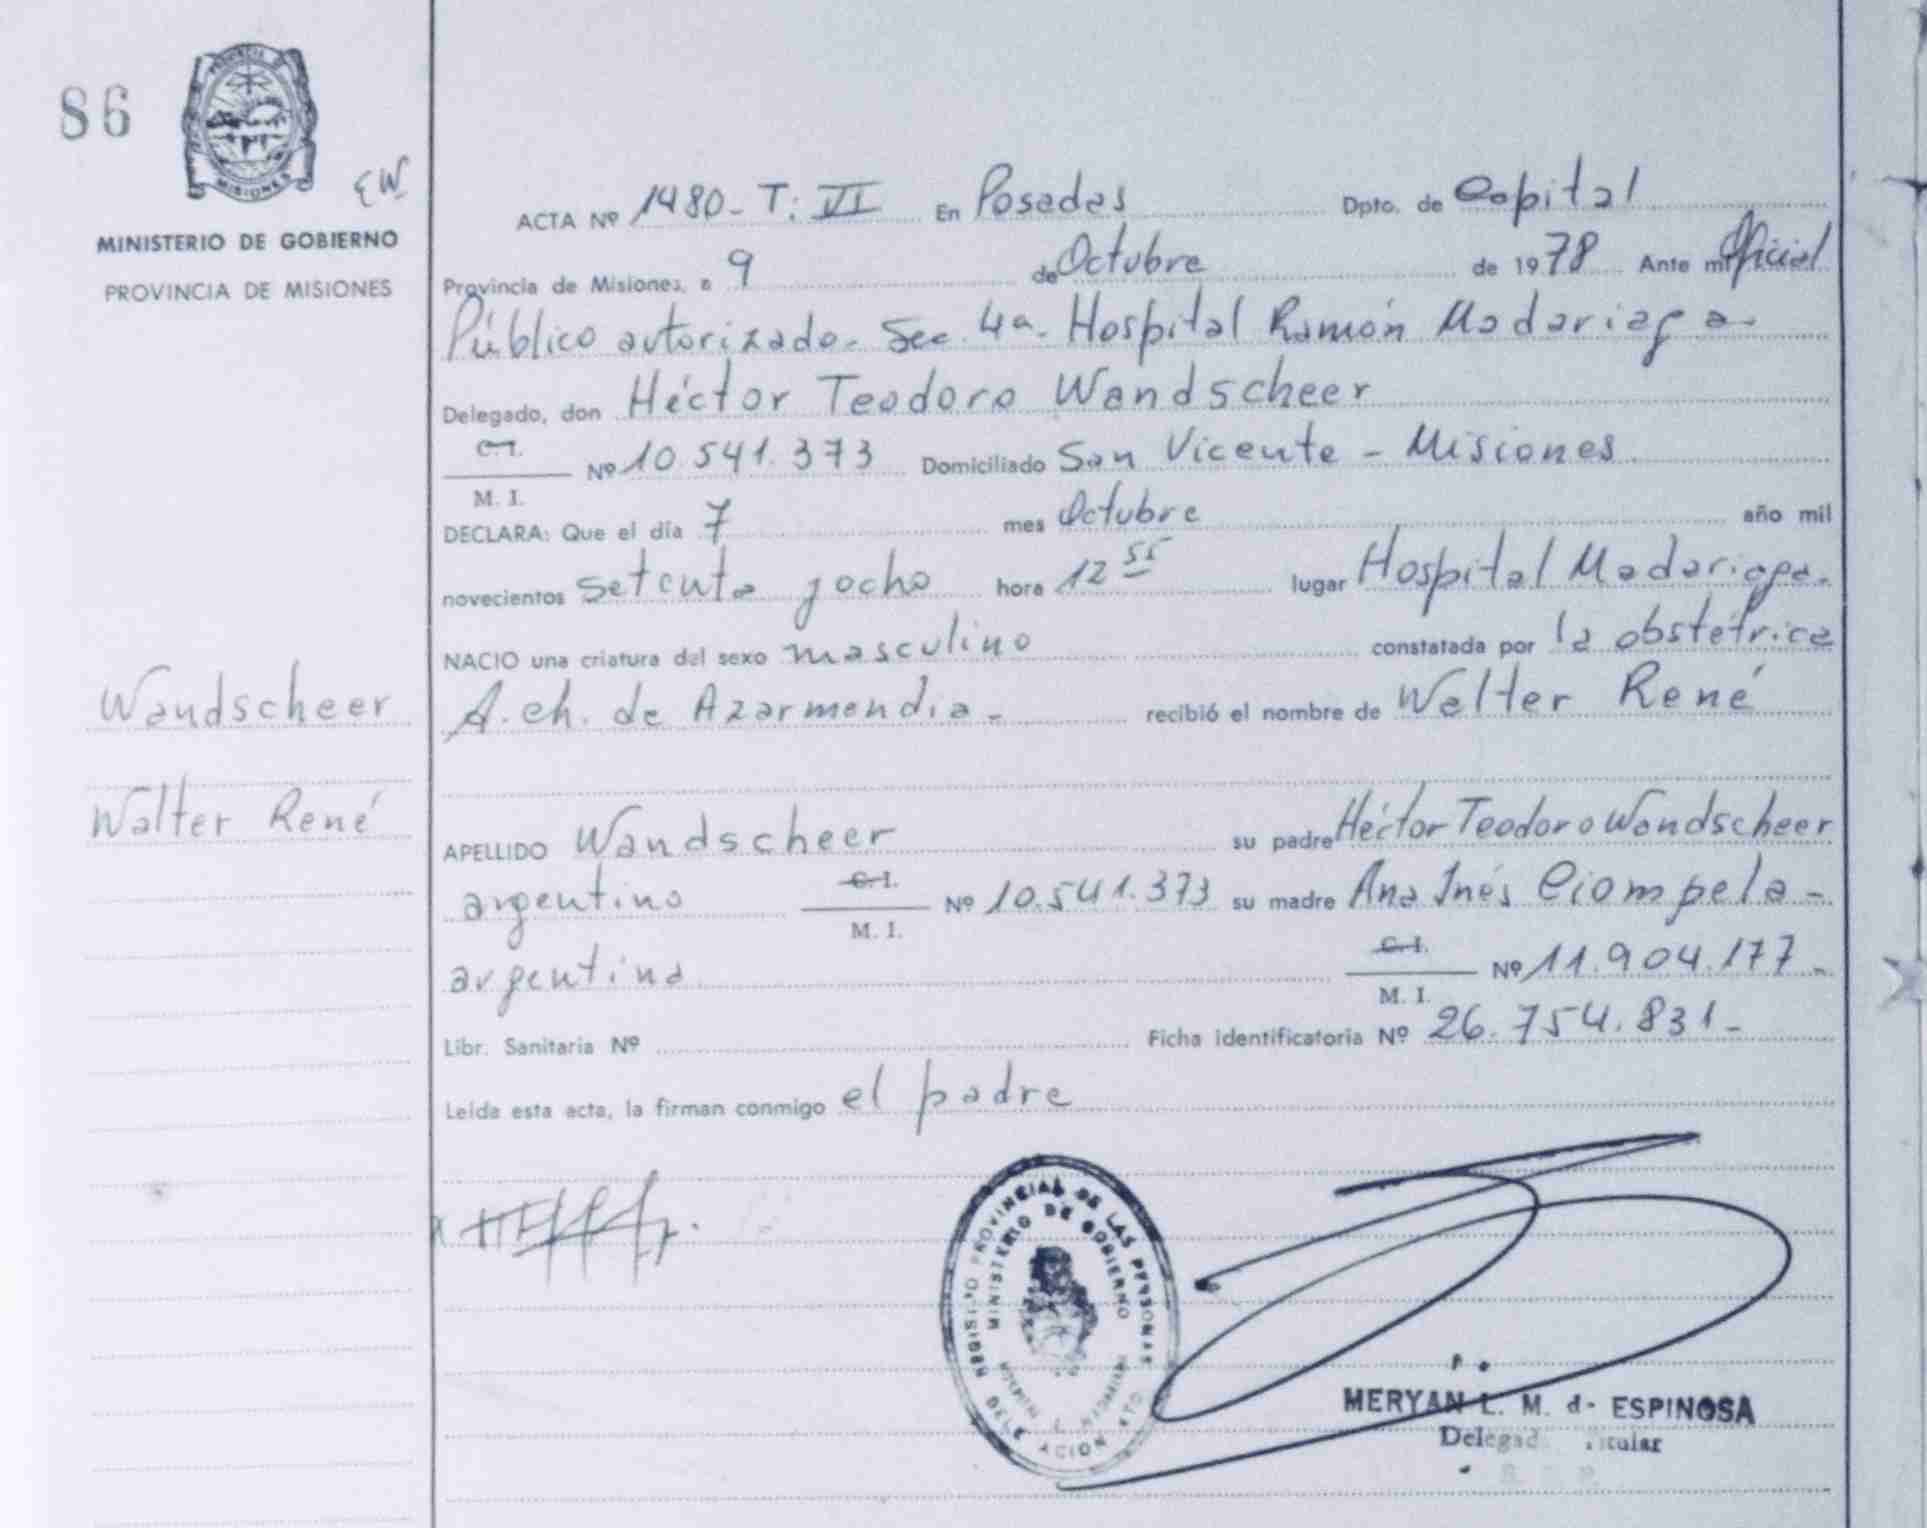 86
PROVINCIA DE
MISIONES
EW
MINISTERIO DE GOBIERNO
PROVINCIA DE MISIONES
Wandscheer
Walter René
ACTA Nº 1480- T: VI En Posadas Dpto. de Capital
Provincia de Misiones, a 9 de Octubre de 1978 Ante mi Oficial
Público autorizado- Sec. 4a- Hospital Ramón Madariaga-
Delegado, don Héctor Teodoro Wandscheer
C.I.
M. I. Nº 10.541.373 Domiciliado San Vicente - Misiones
DECLARA: Que el día 7 mes Octubre año mil
novecientos setenta y ocho hora 12 55 lugar Hospital Madariaga-
NACIO una criatura del sexo masculino constatada por la obstétrica
A. Ch. de Azarmendia- recibió el nombre de Walter René
APELLIDO Wandscheer su padre Héctor Teodoro Wandscheer
argentino C.I. M. I. Nº 10.541.373 su madre Ana Inés Ciompela-
argentina C.I. M. I. Nº 11.904.177-
Libr. Sanitaria Nº Ficha identificatoria Nº 26.754.831-
Leída esta acta, la firman conmigo el padre
REGISTRO PROVINCIAL DE LAS PERSONAS
MINISTERIO DE GOBIERNO
MERYAN L. M. de ESPINOSA